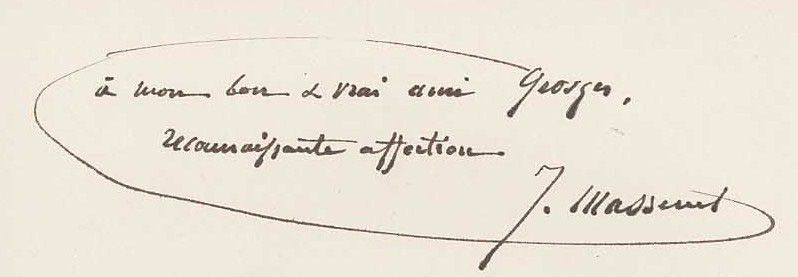 à mon bon & vrai ami Georges,
reconnaissante affection
J. Massenet